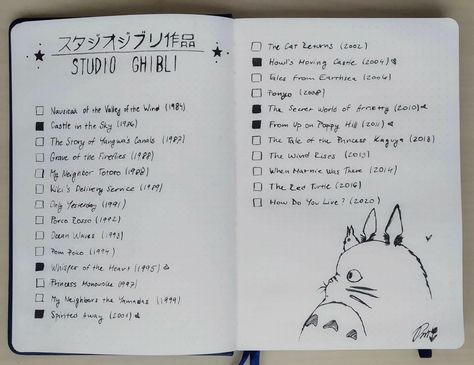 スタジオジブリ作品
STUDIO GHIBLI
Nausicaä of the Valley of the Wind (1984)
Castle in the Sky (1986)
The Story of Yanagawa's Canals (1987)
Grave of the Fireflies (1988)
My Neighbor Totoro (1988)
Kiki's Delivery Service (1989)
Only Yesterday (1991)
Porco Rosso (1992)
Ocean Waves (1993)
Pom Poko (1994)
Whisper of the Heart (1995)
Princess Mononoke (1997)
My Neighbors the Yamadas (1999)
Spirited Away (2001)
The Cat Returns (2002)
Howl's Moving Castle (2004)
Tales from Earthsea (2006)
Ponyo (2008)
The Secret World of Arrietty (2010)
From Up on Poppy Hill (2011)
The Tale of the Princess Kaguya (2013)
The Wind Rises (2013)
When Marnie Was There (2014)
The Red Turtle (2016)
How Do You Live? (2020)